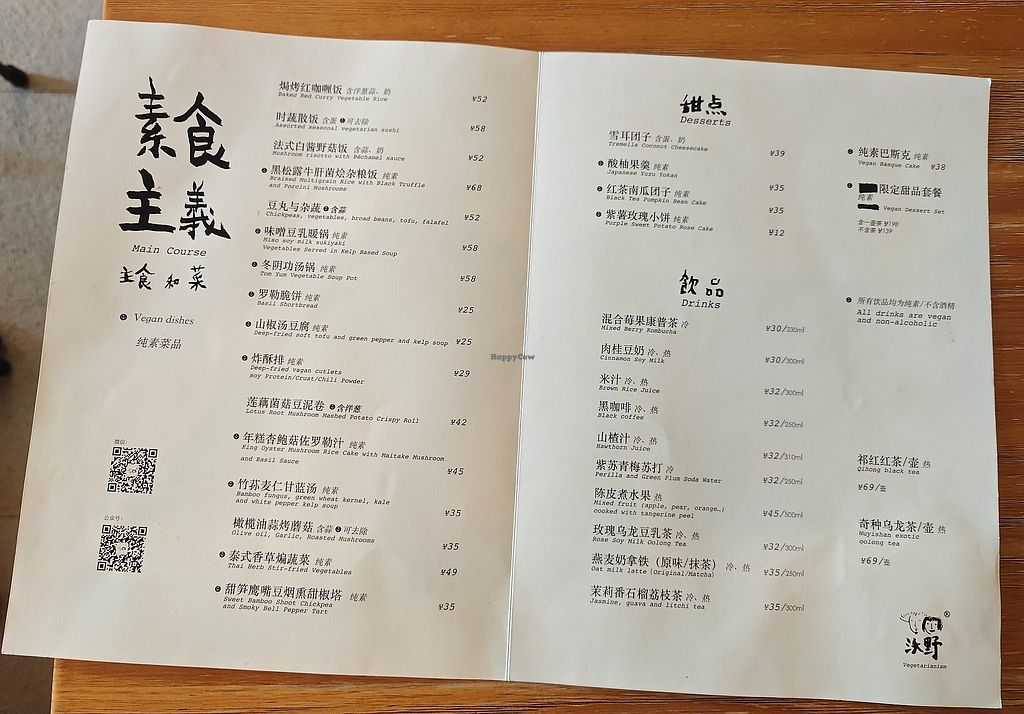 素食
主義
Main Course
主食和菜
Vegan dishes
纯素菜品
微信:
公众号:
焗烤红咖喱饭 含洋葱蒜、奶
Baked Red Curry Vegetable Rice ¥52
时蔬散饭 含蛋 可去除
Assorted seasonal vegetarian sushi ¥58
法式白酱野菇饭 含蒜、奶
Mushroom risotto with Béchamel sauce ¥52
黑松露牛肝菌烩杂粮饭 纯素
Braised Multigrain Rice with Black Truffle
and Porcini Mushrooms ¥68
豆丸与杂蔬 含蒜
Chickpeas, vegetables, broad beans, tofu, falafel ¥52
味噌豆乳暖锅 纯素
Miso soy milk sukiyaki
Vegetables Served in Kelp Based Soup ¥58
冬阴功汤锅 纯素
Tom Yum Vegetable Soup Pot ¥58
罗勒脆饼 纯素
Basil Shortbread ¥25
山椒汤豆腐 纯素
Deep-fried soft tofu and green pepper and kelp soup ¥25
炸酥排 纯素
Deep-fried vagan cutlets
soy Protein/Crust/Chili Powder ¥29
莲藕菌菇豆泥卷 含洋葱
Lotus Root Mushroom Mashed Potato Crispy Roll ¥42
年糕杏鲍菇佐罗勒汁 纯素
King Oyster Mushroom Rice Cake with Maitake Mushroom
and Basil Sauce ¥45
竹荪麦仁甘蓝汤 纯素
Bamboo fungus, green wheat kernel, kale
and white pepper kelp soup ¥35
橄榄油蒜烤蘑菇 含蒜 可去除
Olive oil, Garlic, Roasted Mushrooms ¥35
泰式香草煸蔬菜 纯素
Thai Herb Stir-fried Vegetables ¥49
甜笋鹰嘴豆烟熏甜椒塔 纯素
Sweet Bamboo Shoot Chickpea
and Smoky Bell Pepper Tart ¥35
甜点
Desserts
雪耳团子 含蛋、奶
Tremella Coconut Cheesecake ¥39
酸柚果羹 纯素
Japanese Yuzu Yokan ¥35
红茶南瓜团子 纯素
Black Tea Pumpkin Bean Cake ¥35
紫薯玫瑰小饼 纯素
Purple Sweet Potato Rose Cake ¥12
纯素巴斯克 纯素
Vegan Basque Cake ¥38
限定甜品套餐
纯素
Vegan Dessert Set
含一壶茶 ¥198
不含茶 ¥139
飲品
Drinks
所有饮品均为纯素/不含酒精
All drinks are vegan
and non-alcoholic
混合莓果康普茶 冷
Mixed Berry Kombucha ¥30/230ml
肉桂豆奶 冷、热
Cinnamon Soy Milk ¥30/300ml
米汁 冷、热
Brown Rice Juice ¥32/300ml
黑咖啡 冷、热
Black coffee ¥32/250ml
山楂汁 冷、热
Hawthorn Juice ¥32/310ml
紫苏青梅苏打 冷
Perilla and Green Plum Soda Water ¥32/250ml
陈皮煮水果 热
Mixed fruit (apple, pear, orange…)
cooked with tangerine peel ¥45/500ml
玫瑰乌龙豆乳茶 冷、热
Rose Soy Milk Oolong Tea ¥32/300ml
燕麦奶拿铁（原味/抹茶） 冷、热
Oat milk latte (Original/Matcha) ¥35/250ml
茉莉番石榴荔枝茶 冷、热
Jasmine, guava and litchi tea ¥35/300ml
祁红红茶/壶 热
Qihong black tea
¥69/壶
奇种乌龙茶/壶 热
Wuyishan exotic
oolong tea
¥69/壶
野
®
Vegetarianism
HappyCow